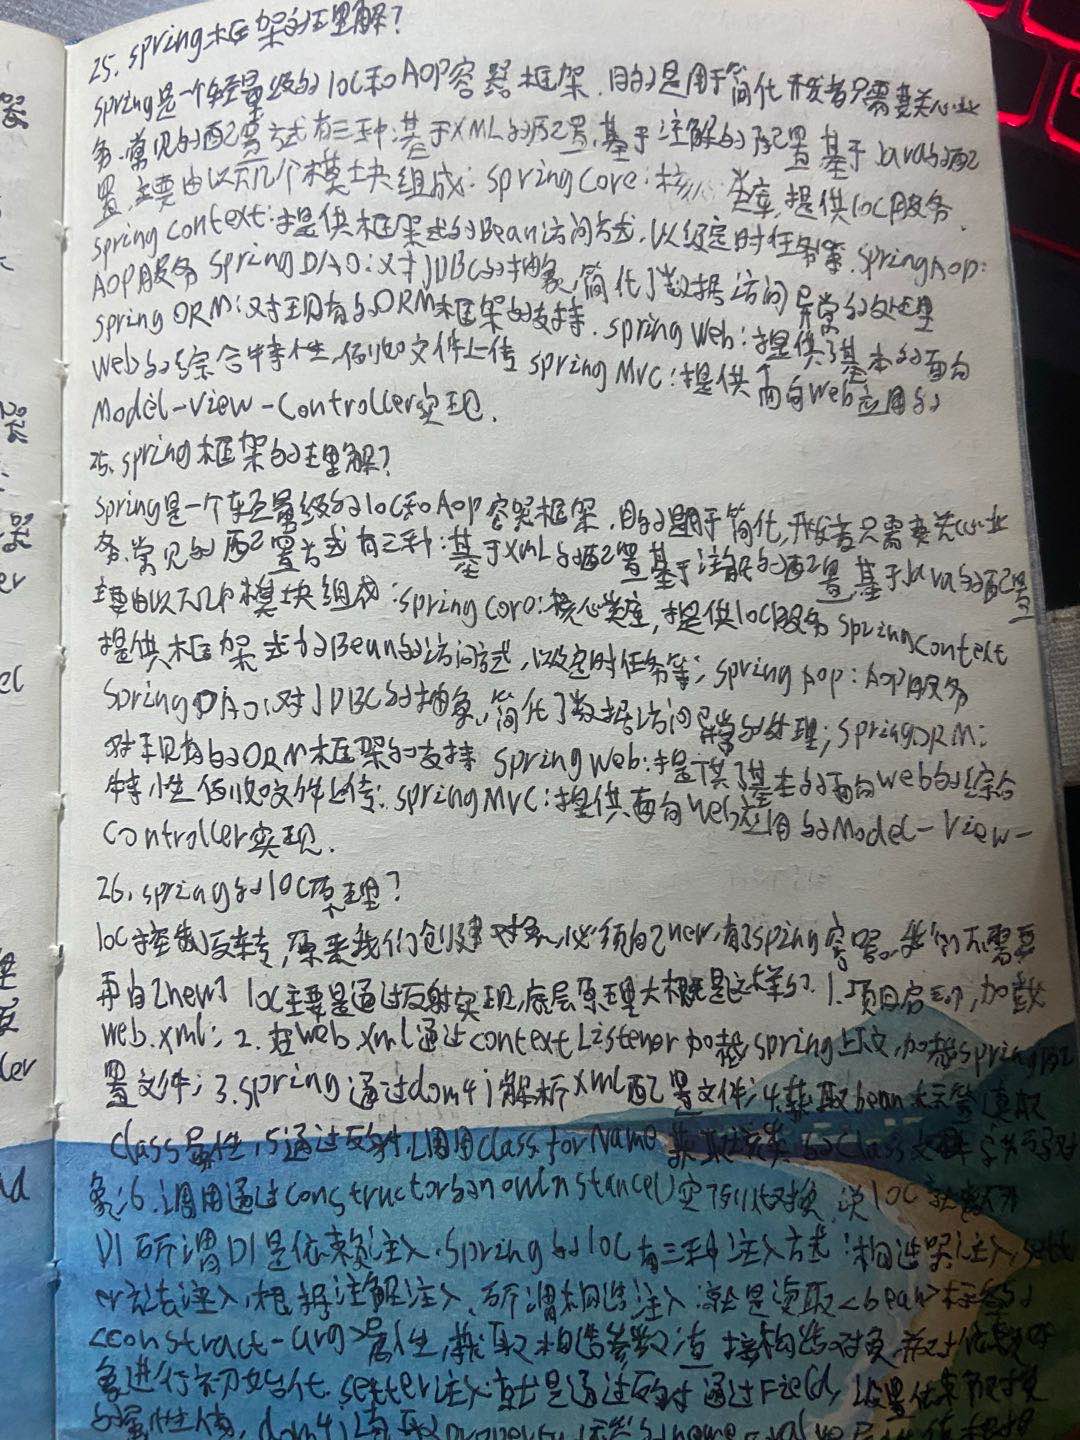 25. spring框架的理解?
spring是一个轻量级的IOC和AOP容器框架.目的是用于简化开发者只需要关心业
务.常见的配置方式有三种:基于XML的配置,基于注解的配置 基于Java的配
置,主要由以下几个模块组成: spring Core:核心类库,提供IOC服务.
spring Context:提供框架式的Bean访问方式,以及定时任务等.spring AOP:
AOP服务 spring DAO:对JDBC的抽象,简化了数据访问异常的处理
spring ORM:对现有的ORM框架的支持.spring Web:提供了基本的面向
Web的综合特性,例如文件上传 spring MVC:提供面向Web应用的
Model-View-Controller实现.
25.spring框架的理解?
spring是一个轻量级的IOC和AOP容器框架.目的是用于简化,开发者只需要关心业
务.常见的配置方式有三种:基于XML的配置 基于注解的配置,基于Java的配置
主要由以下几个模块组成:spring Core:核心类库,提供IOC服务 spring Context
提供框架式的Bean的访问方式,以及定时任务等;spring AOP:AOP服务
spring DAO:对JDBC的抽象,简化了数据访问异常的处理;spring ORM:
对现有的ORM框架的支持 spring Web:提供了基本的面向Web的综合
特性例如文件上传:spring MVC:提供面向Web应用的Model-View-
Controller实现.
26.spring的IOC原理?
IOC控制反转,原来我们创建对象,必须自己new,有了spring容器,我们不需要
再自己new了 IOC主要是通过反射实现,底层原理大概是这样的.1.项目启动,加载
web.xml;2.在web.xml通过contextListener加载spring上下文,加载spring配
置文件;3.spring通过dom4j解析xml配置文件;4.获取bean标签读取
class属性,5通过反射,调用class.forName获取该类的Class文件字节码对
象;6.调用通过constructor newInstance()实例化对象,说IOC就
DI 所谓DI是依赖注入.spring的IOC有三种注入方式:构造器注入,sett
er方法注入,根据注解注入.所谓构造注入:就是读取<bean>标签的
<constract-arg>属性,获取构造参数 直接构造对象,并对依赖对
象进行初始化.setter注入:就是通过反射 通过Field,设置依赖对象
的属性值,dom4j读取property标签的name value